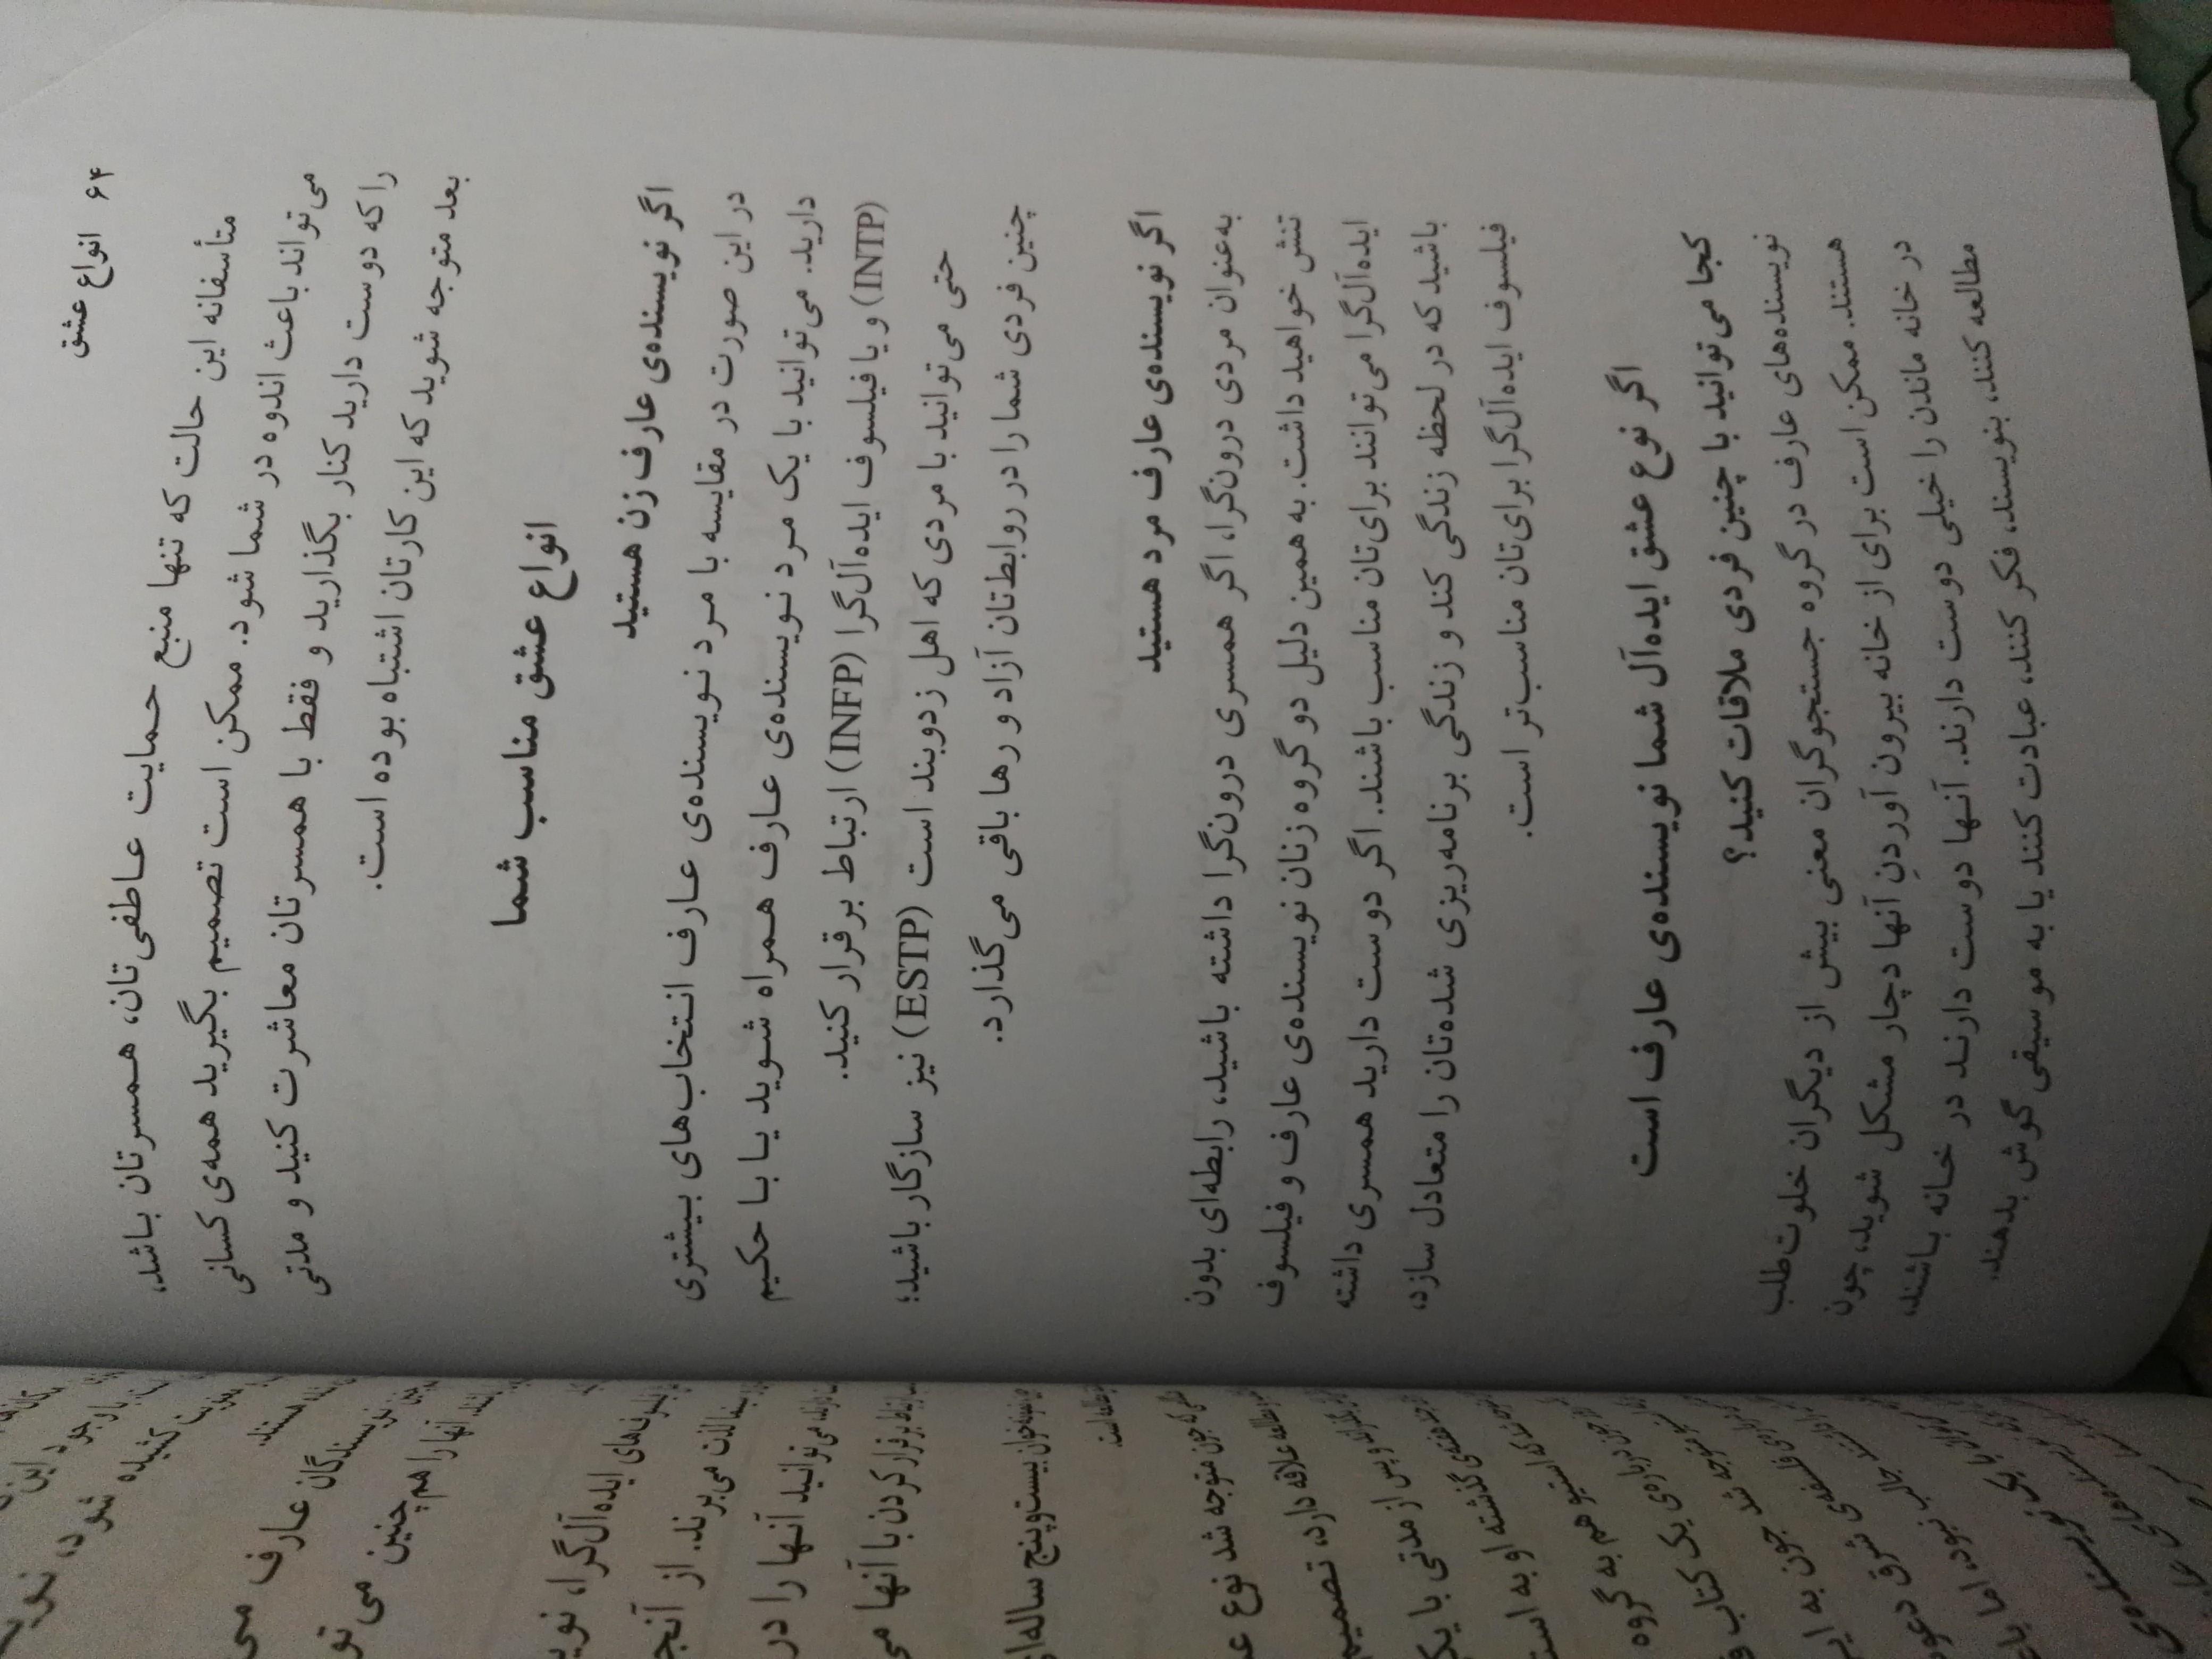 ۶۴ انواع عشق
متأسفانه این حالت که تنها منبع حمایت عاطفی‌تان، همسرتان باشد،
می‌تواند باعث اندوه در شما شود. ممکن است تصمیم بگیرید همه‌ی کسانی
را که دوست دارید کنار بگذارید و فقط با همسرتان معاشرت کنید و مدتی
بعد متوجه شوید که این کارتان اشتباه بوده است.
انواع عشق مناسب شما
اگر نویسنده‌ی عارف زن هستید
در این صورت در مقایسه با مرد نویسنده‌ی عارف انتخاب‌های بیشتری
دارید. می‌توانید با یک مرد نویسنده‌ی عارف همراه شوید یا با حکیم
(INTP) و یا فیلسوف ایده‌آل‌گرا (INFP) ارتباط برقرار کنید.
حتی می‌توانید با مردی که اهل زدوبند است (ESTP) نیز سازگار باشید؛
چنین فردی شما را در روابط‌تان آزاد و رها باقی می‌گذارد.
اگر نویسنده‌ی عارف مرد هستید
به‌عنوان مردی درون‌گرا، اگر همسری درون‌گرا داشته باشید، رابطه‌ای بدون
تنش خواهید داشت. به همین دلیل دو گروه زنان نویسنده‌ی عارف و فیلسوف
ایده‌آل‌گرا می‌توانند برای‌تان مناسب باشند. اگر دوست دارید همسری داشته
باشید که در لحظه زندگی کند و زندگی برنامه‌ریزی شده‌تان را متعادل سازد،
فیلسوف ایده‌آل‌گرا برای‌تان مناسب‌تر است.
اگر نوع عشق ایده‌آل شما نویسنده‌ی عارف است
کجا می‌توانید با چنین فردی ملاقات کنید؟
نویسنده‌های عارف در گروه جستجوگران معنی بیش از دیگران خلوت‌طلب
هستند. ممکن است برای از خانه بیرون آوردنِ آنها دچار مشکل شوید، چون
در خانه ماندن را خیلی دوست دارند. آنها دوست دارند در خانه باشند،
مطالعه کنند، بنویسند، فکر کنند، عبادت کنند یا به موسیقی گوش بدهند.
نویسندگان عارف می
هم‌چنین می‌تو
ایده‌آل‌گرا، نویی
لذت می‌برند. از آنج
می‌توانید آنها را در
برقرار کردن با آنها می
بیست‌وپنج ساله‌ا
متوجه شد نوع عـ
علاقه دارد، تصمیم
پس از مدتی با یک
گذشته او به است
هم به گروه
یک کتاب و